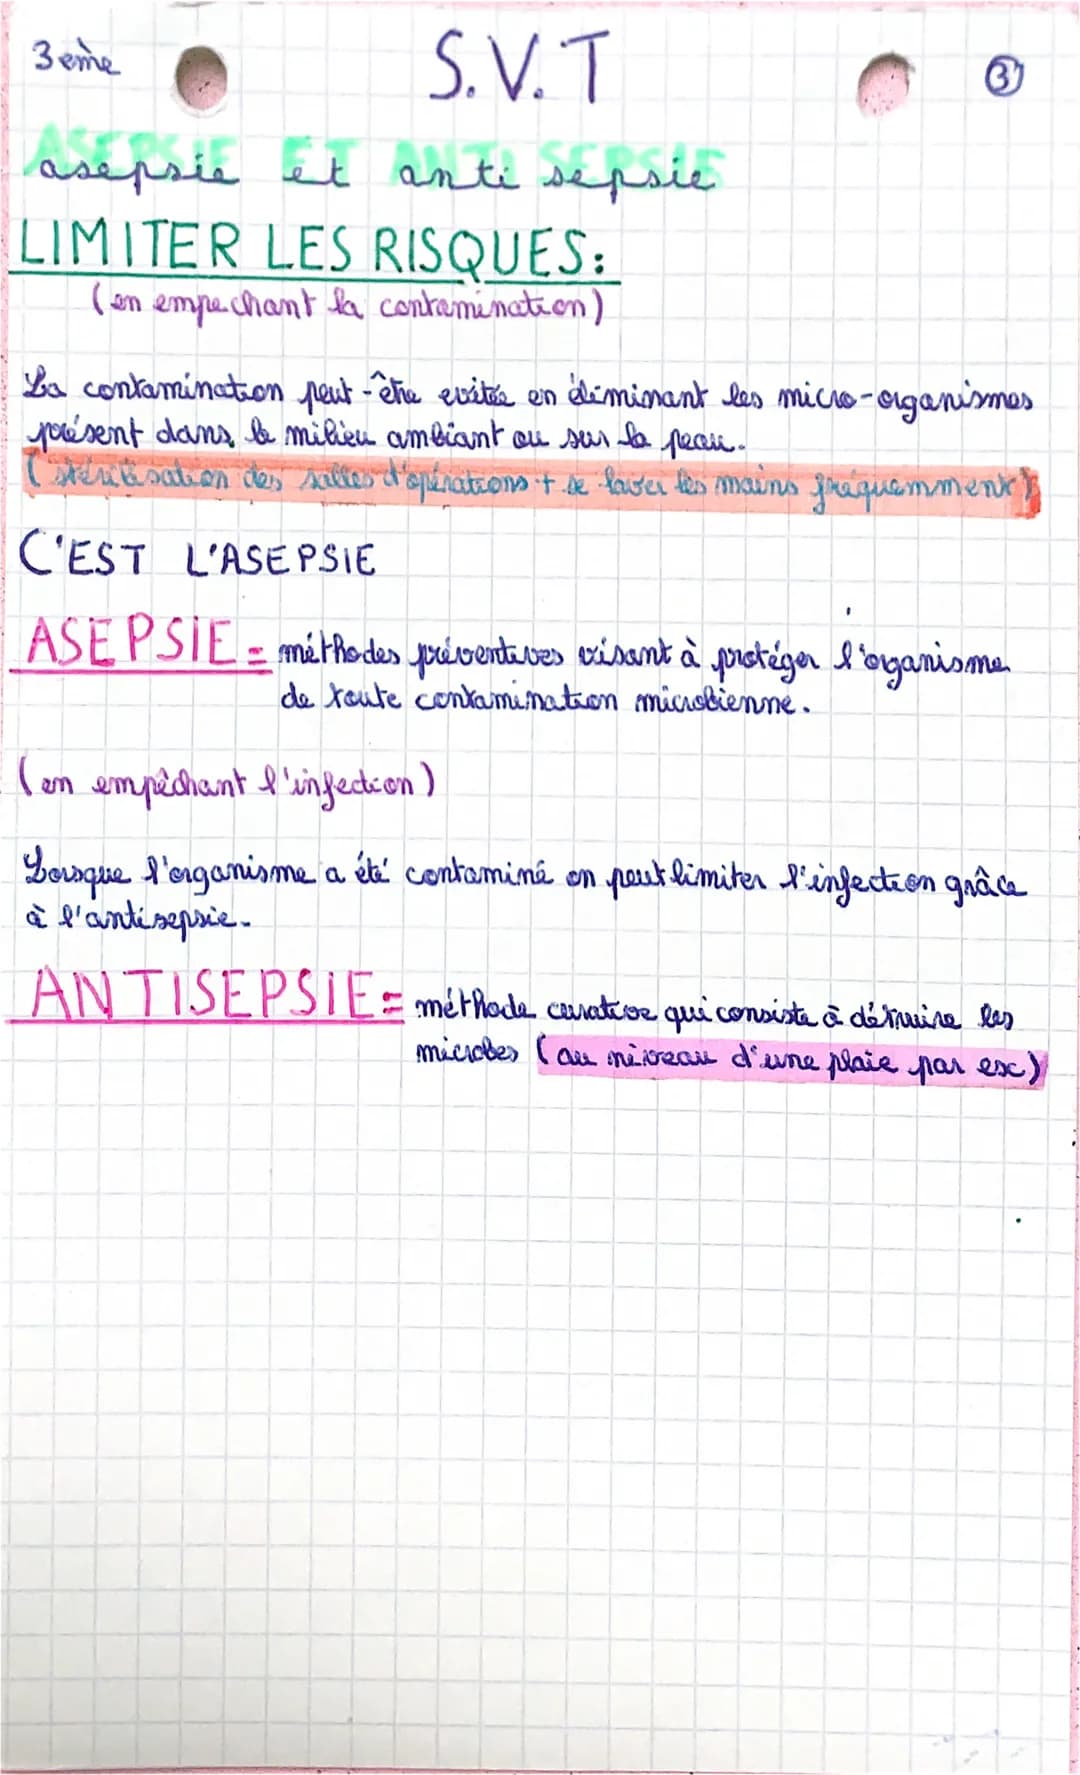 3 ème
S.V.T
3
ASEPSIE ET ANTI SEPSIE
asepsie et anti sepsie
LIMITER LES RISQUES:
(en empechant la contamination)
La contamination peut-être evitée en éliminant les micro-organismes
présent dans le milieu ambiant ou sur la peau.
(stérilisation des salles d'opérations + se laver les mains fréquemment)
C'EST L'ASEPSIE
ASEPSIE = méthodes préventives visant à protéger l'organisme
de toute contamination microbienne.
(en empêchant l'infection)
Lorsque l'organisme a été contaminé on peut limiter l'infection grâce
à l'antisepsie.
ANTISEPSIE = méthode curative qui consiste à détruire les
microbes (au niveau d'une plaie par ex)